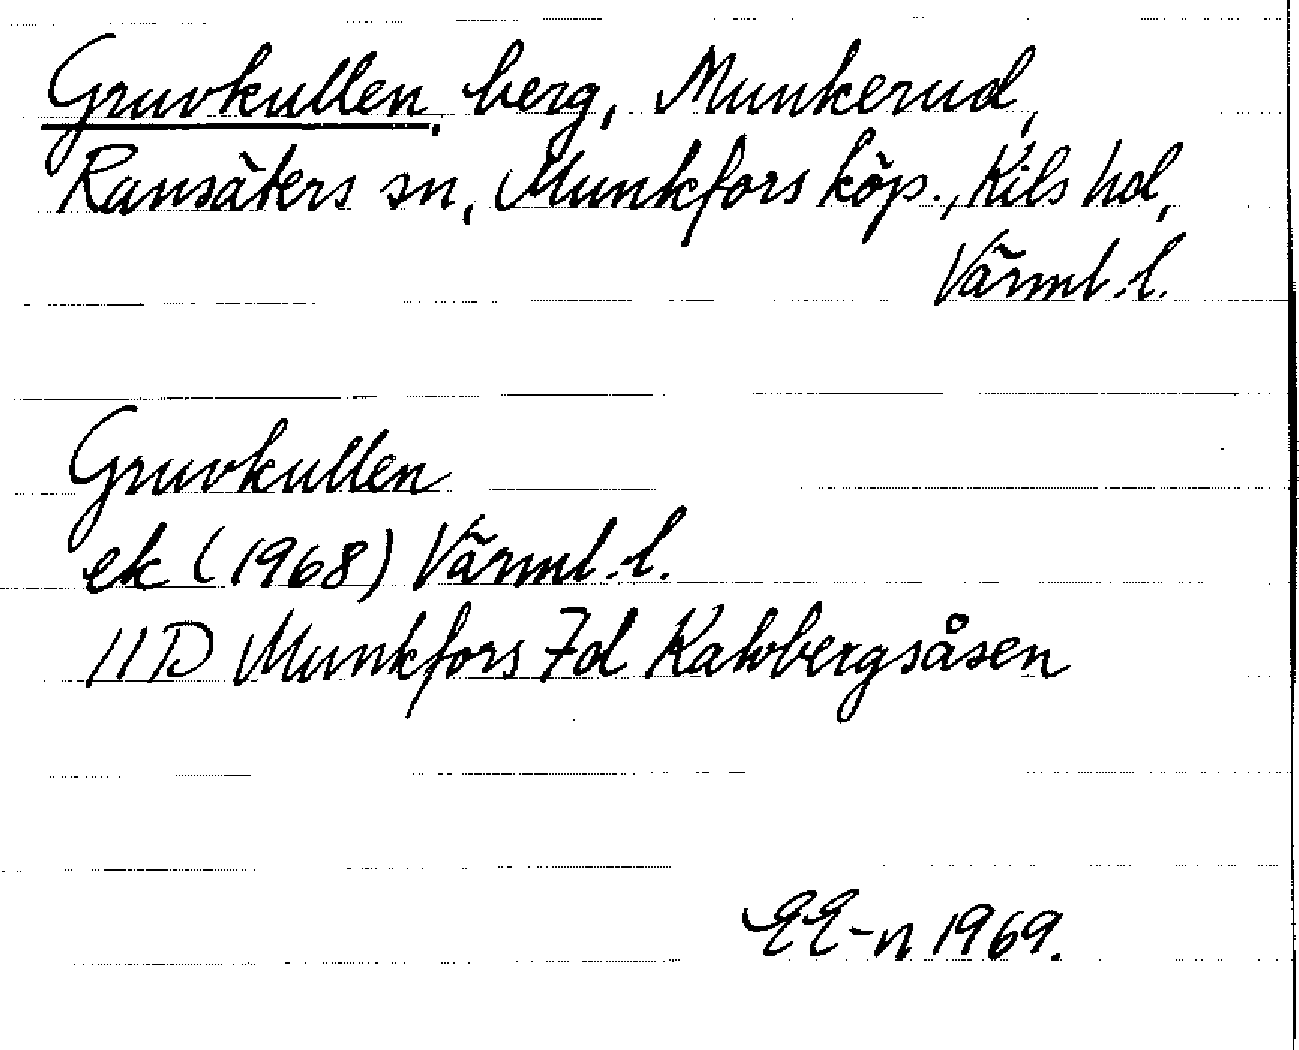 Gruvkullen, berg, Munkerud,
Ransäters sn, Munkfors köp., Kils hd,
Värml. l.
Gruvkullen
ek (1968) Värml. l.
11D Munkfors 7d Kalvbergsåsen
EE-n 1969.